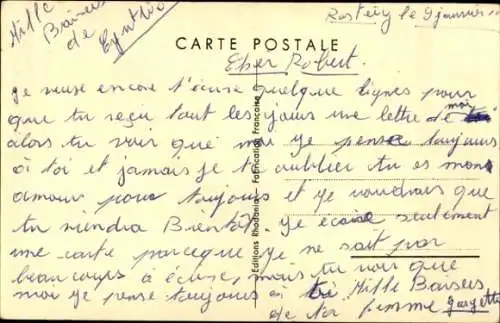 Mille
Baisers
de
Cynthia
le 9 janvier
CARTE POSTALE
Cher Robert.
je encore t'écrire quelque lignes pour
que tu reçu tout les jours une lettre de moi
alors tu voir que moi je pense toujours
à toi et jamais je t'oublier tu es mon
amour pour toujours et je voudrais que
tu viendra Bientôt. je écrire seulement
une carte parceque je ne sait pas
beaucoups à écrire, mais tu voir que
moi je pense toujours à toi Mille Baisers
de ta femme
Editions Rhodania - Fabrication Française